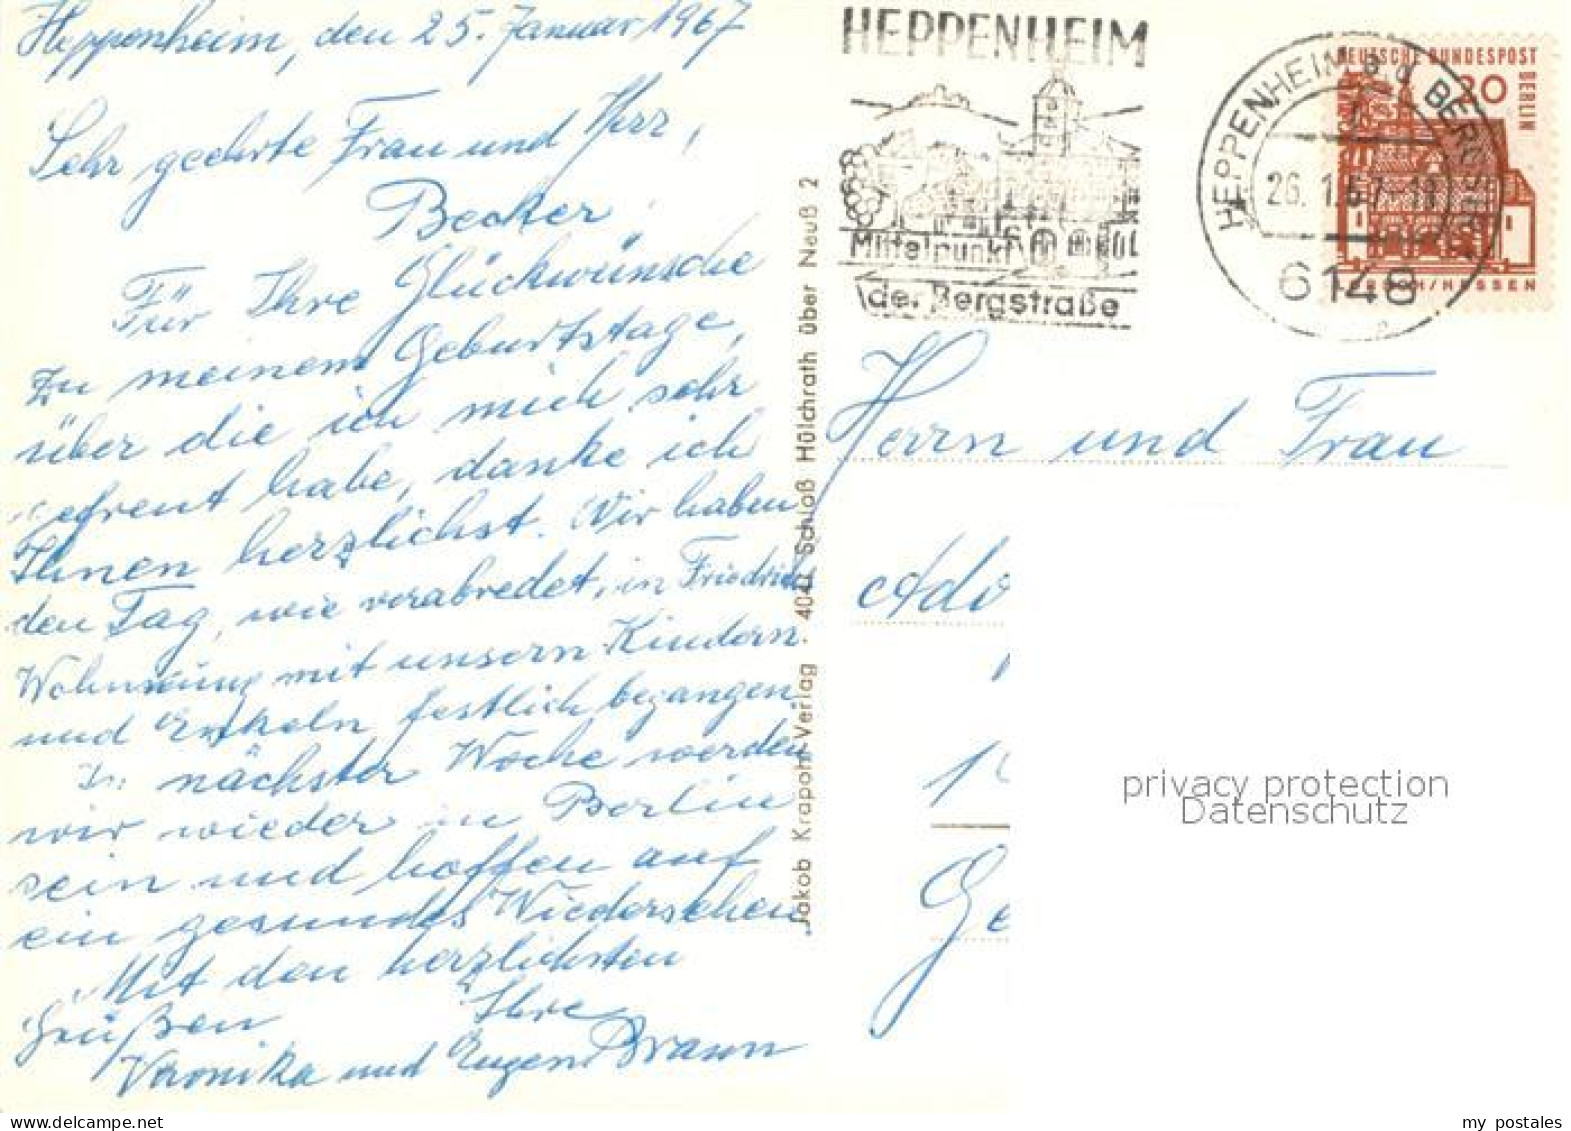 Heppenheim, den 25. Januar 1967
Sehr geehrte Frau und Herr,
Becker
Für Ihre Glückwünsche
zu meinem Geburtstage,
über die ich mich sehr
gefreut habe, danke ich
Ihnen herzlichst. Wir haben
den Tag, wie verabredet, in Friedrich
Wohnung mit unsern Kindern
und Enkeln festlich begangen
In nächster Woche werden
wir wieder in Berlin
sein und hoffen auf
ein gesundes Wiedersehen
Mit den herzlichsten
Grüßen Ihre
Veronika und Eugen Braun
Jakob Krapohl-Verlag · 4041 Schloß Hülchrath über Neuß 2
HEPPENHEIM
Mittelpunkt
der Bergstraße
HEPPENHEIM a d BERGSTR
26. 1. 67 - 18
6148
DEUTSCHE BUNDESPOST
BERLIN
20
LORSCH/HESSEN
Herrn und Frau
Ado
1
Ge
privacy protection
Datenschutz
my postales